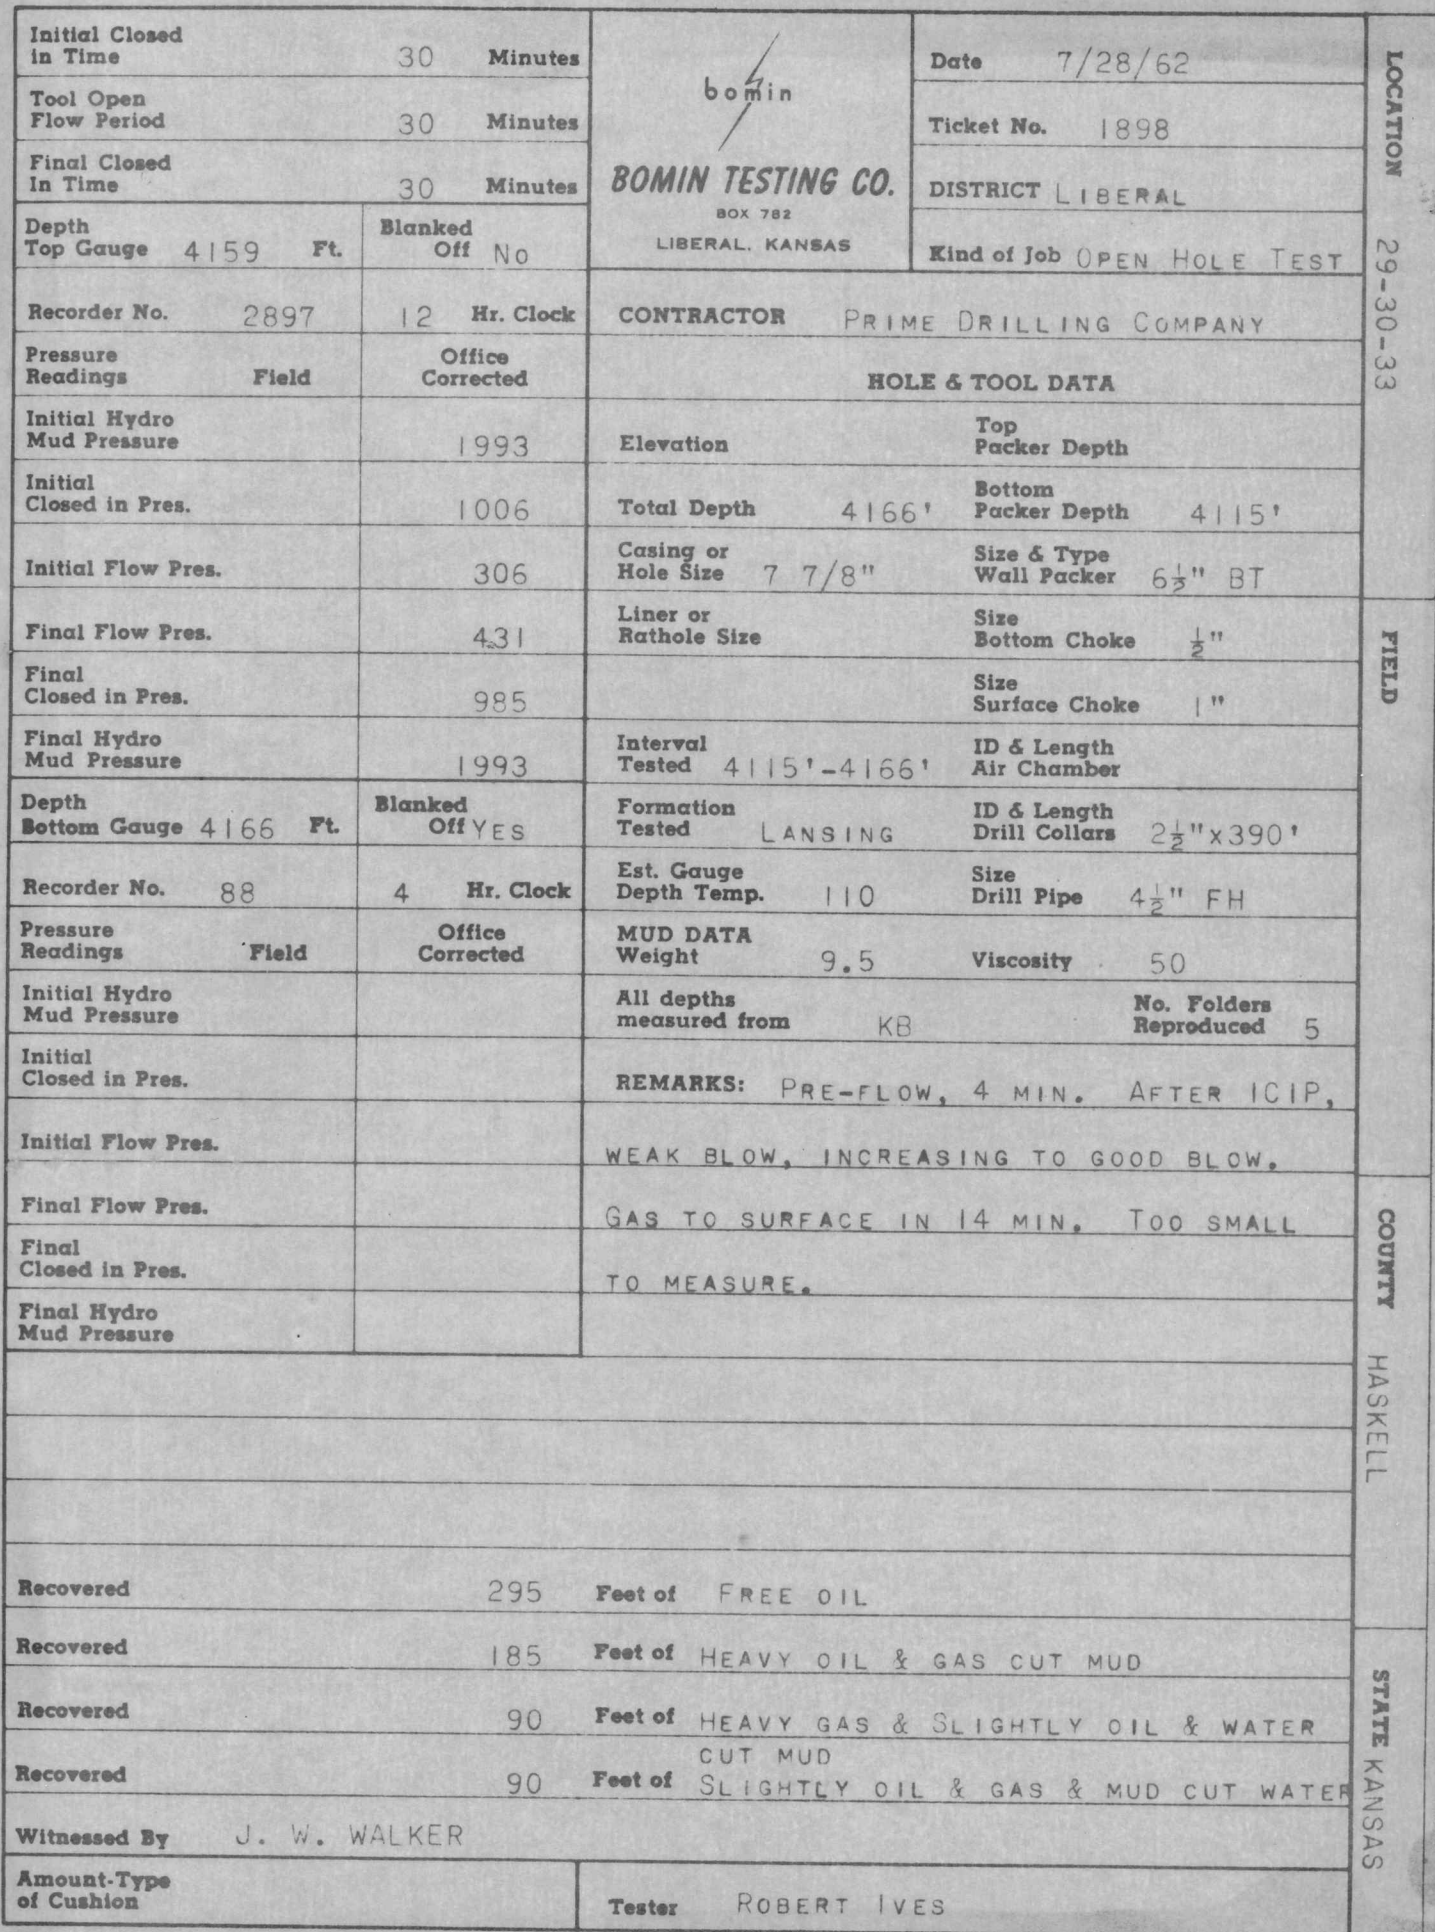 Initial Closed
in Time 30 Minutes
Tool Open
Flow Period 30 Minutes
Final Closed
In Time 30 Minutes
Depth
Top Gauge 4159 Ft.
Blanked
Off No
bomin
BOMIN TESTING CO.
BOX 782
LIBERAL, KANSAS
Date 7/28/62
Ticket No. 1898
DISTRICT LIBERAL
Kind of Job OPEN HOLE TEST
Recorder No. 2897 12 Hr. Clock
CONTRACTOR PRIME DRILLING COMPANY
Pressure
Readings Field
Office
Corrected
Initial Hydro
Mud Pressure 1993
Initial
Closed in Pres. 1006
Initial Flow Pres. 306
Final Flow Pres. 431
Final
Closed in Pres. 985
Final Hydro
Mud Pressure 1993
Depth
Bottom Gauge 4166 Ft.
Blanked
Off YES
Recorder No. 88 4 Hr. Clock
Pressure
Readings Field
Office
Corrected
Initial Hydro
Mud Pressure
Initial
Closed in Pres.
Initial Flow Pres.
Final Flow Pres.
Final
Closed in Pres.
Final Hydro
Mud Pressure
HOLE & TOOL DATA
Elevation
Top
Packer Depth
Total Depth 4166'
Bottom
Packer Depth 4115'
Casing or
Hole Size 7 7/8"
Size & Type
Wall Packer 6½" BT
Liner or
Rathole Size
Size
Bottom Choke ½"
Size
Surface Choke 1"
Interval
Tested 4115'-4166'
ID & Length
Air Chamber
Formation
Tested LANSING
ID & Length
Drill Collars 2½"x390'
Est. Gauge
Depth Temp. 110
Size
Drill Pipe 4½" FH
MUD DATA
Weight 9.5 Viscosity 50
All depths
measured from KB
No. Folders
Reproduced 5
REMARKS: PRE-FLOW, 4 MIN. AFTER ICIP,
WEAK BLOW, INCREASING TO GOOD BLOW.
GAS TO SURFACE IN 14 MIN. TOO SMALL
TO MEASURE.
Recovered 295 Feet of FREE OIL
Recovered 185 Feet of HEAVY OIL & GAS CUT MUD
Recovered 90 Feet of HEAVY GAS & SLIGHTLY OIL & WATER
CUT MUD
Recovered 90 Feet of SLIGHTLY OIL & GAS & MUD CUT WATER
Witnessed By J. W. WALKER
Amount-Type
of Cushion
Tester ROBERT IVES
LOCATION 29-30-33
FIELD
COUNTY HASKELL
STATE KANSAS